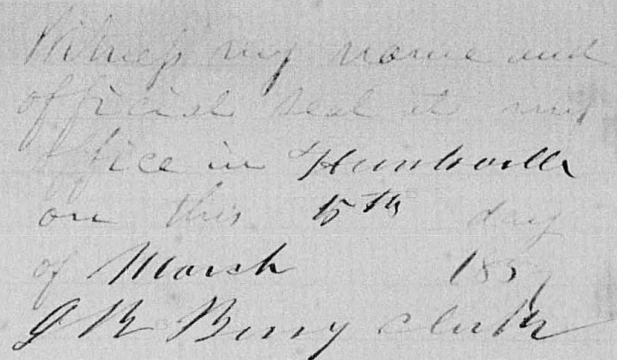 Witness my name and
official seal at my
office in Huntsville
on this 15th day
of March 1859
J B Berry Clerk